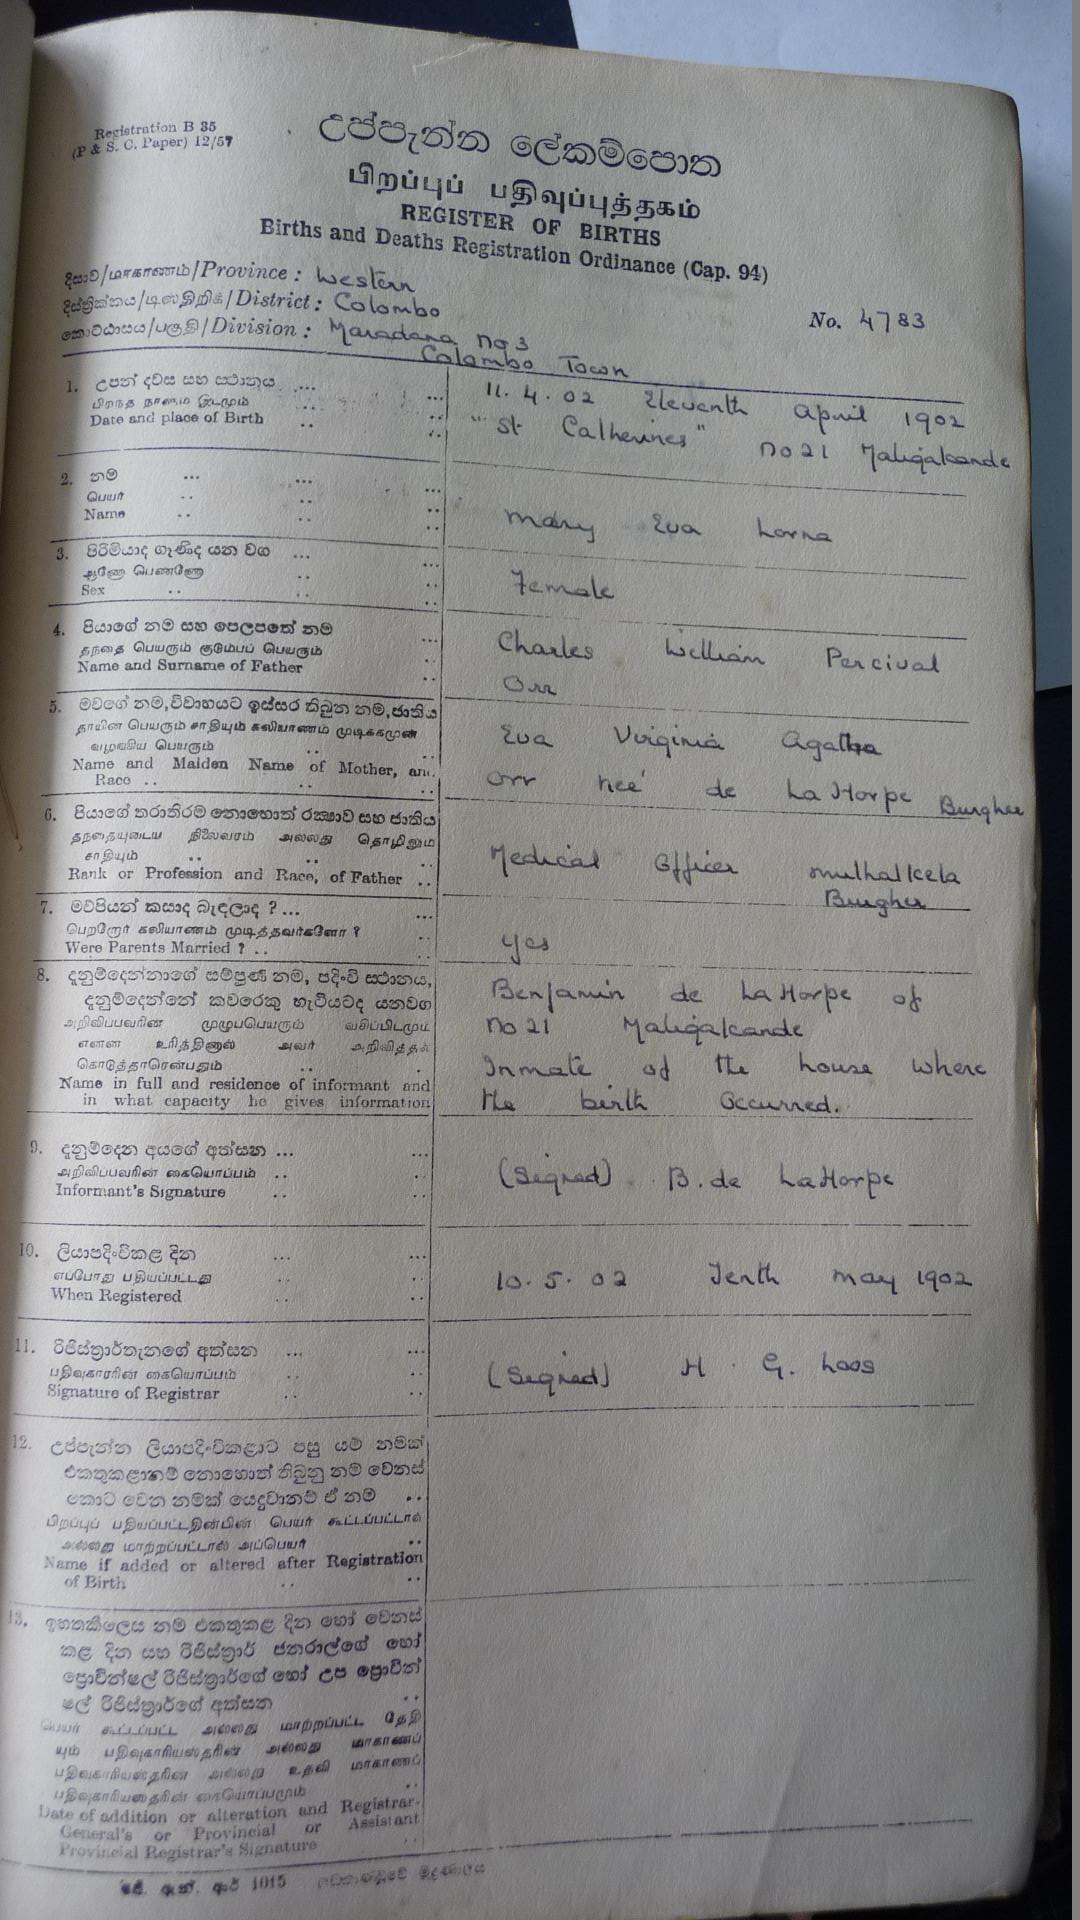 Registration B 35
(P & S. C. Paper) 12/57
උප්පැන්න ලේකම්පොත
பிறப்புப் பதிவுப்புத்தகம்
REGISTER OF BIRTHS
Births and Deaths Registration Ordinance (Cap. 94)
දිසාව/மாகாணம்/Province : Western
දිස්ත්‍රික්කය/டிஸ்திறிக்/District : Colombo
කොට්ඨාසය/பகுதி/Division : Maradana No 3
Colombo Town
No. 4783
1. උපන් දවස සහ ස්ථානය ... ...
பிறந்த நாளும் இடமும் .. ..
Date and place of Birth .. ..
11. 4. 02 Eleventh April 1902
"St Catherines" No 21 Maligakande
2. නම ... ... ...
பெயர் .. .. ..
Name .. .. ..
Mary Eva Lorna
3. පිරිමියාද ගැණිද යන වග ... ...
ஆணோ பெண்ணோ .. ..
Sex .. .. ..
Female
4. පියාගේ නම සහ පෙලපතේ නම ...
தந்தை பெயரும் குடும்பப் பெயரும் ..
Name and Surname of Father ..
Charles William Percival
Orr
5. මවගේ නම, විවාහයට ඉස්සර තිබුන නම, ජාතිය
தாயின பெயரும் சாதியும் கலியாணம் முடிக்கமுன்
வழங்கிய பெயரும் .. ..
Name and Maiden Name of Mother, and
Race .. .. ..
Eva Virginia Agatha
Orr neé de La Horpe Burgher
6. පියාගේ තරාතිරම නොහොත් රක්ෂාව සහ ජාතිය
தந்தையுடைய நிலைவரம் அல்லது தொழிலும்
சாதியும் .. .. ..
Rank or Profession and Race, of Father ..
Medical Officer Mulhalkela
Burgher
7. මව්පියන් කසාද බැඳලාද ? ... ...
பெற்றோர் கலியாணம் முடித்தவர்களோ ? ..
Were Parents Married ? .. ..
Yes
8. දැනුම්දෙන්නාගේ සම්පුර්‍ණ නම, පදිංචි ස්ථානය,
දැනුම්දෙන්නේ කවරෙකු හැටියටද යනවග
அறிவிப்பவரின் முழுப்பெயரும் வசிப்பிடமும்
என்ன உரித்தினால் அவர் அறிவித்தல்
கொடுத்தாரென்பதும் .. .
Name in full and residence of informant and
in what capacity he gives information
Benjamin de La Horpe of
No 21 Maligakande
Inmate of the house where
the birth occurred.
9. දැනුම්දෙන අයගේ අත්සන ... ...
அறிவிப்பவரின் கையொப்பம் .. ..
Informant's Signature .. ..
(Signed) B. de La Horpe
10. ලියාපදිංචිකළ දින ... ...
எப்போது பதியப்பட்டது .. ..
When Registered .. ..
10. 5. 02 Tenth May 1902
11. රිජිස්ත්‍රාර්තැනගේ අත්සන ... ...
பதிவுகாரரின் கையொப்பம் .. ..
Signature of Registrar .. ..
(Signed) H. G. Loos
12. උප්පැන්න ලියාපදිංචිකළාට පසු යම් නමක්
එකතුකළානම් නොහොත් තිබුනු නම වෙනස්
කොට වෙන නමක් යෙදුවානම් ඒ නම ..
பிறப்புப் பதியப்பட்டதின்பின் பெயர் கூட்டப்பட்டால்
அல்லது மாற்றப்பட்டால் அப்பெயர் ..
Name if added or altered after Registration
of Birth .. ..
13. ඉහතකීලෙස නම එකතුකළ දින හෝ වෙනස්
කළ දින සහ රිජිස්ත්‍රාර් ජනරාල්ගේ හෝ
ප්‍රොවින්ෂල් රිජිස්ත්‍රාර්ගේ හෝ උප ප්‍රොවින්
ෂල් රිජිස්ත්‍රාර්ගේ අත්සන ..
பெயர் கூட்டப்பட்ட அல்லது மாற்றப்பட்ட தேதி
யும் பதிவுகாரியஸ்தரின் அல்லது மாகாணப்
பதிவுகாரியஸ்தரின் அல்லது உதவி மாகாணப்
பதிவுகாரியஸ்தரின் கையொப்பமும் ..
Date of addition or alteration and Registrar-
General's or Provincial or Assistant
Provincial Registrar's Signature ..
ජේ. ඇන්. ආර් 1015